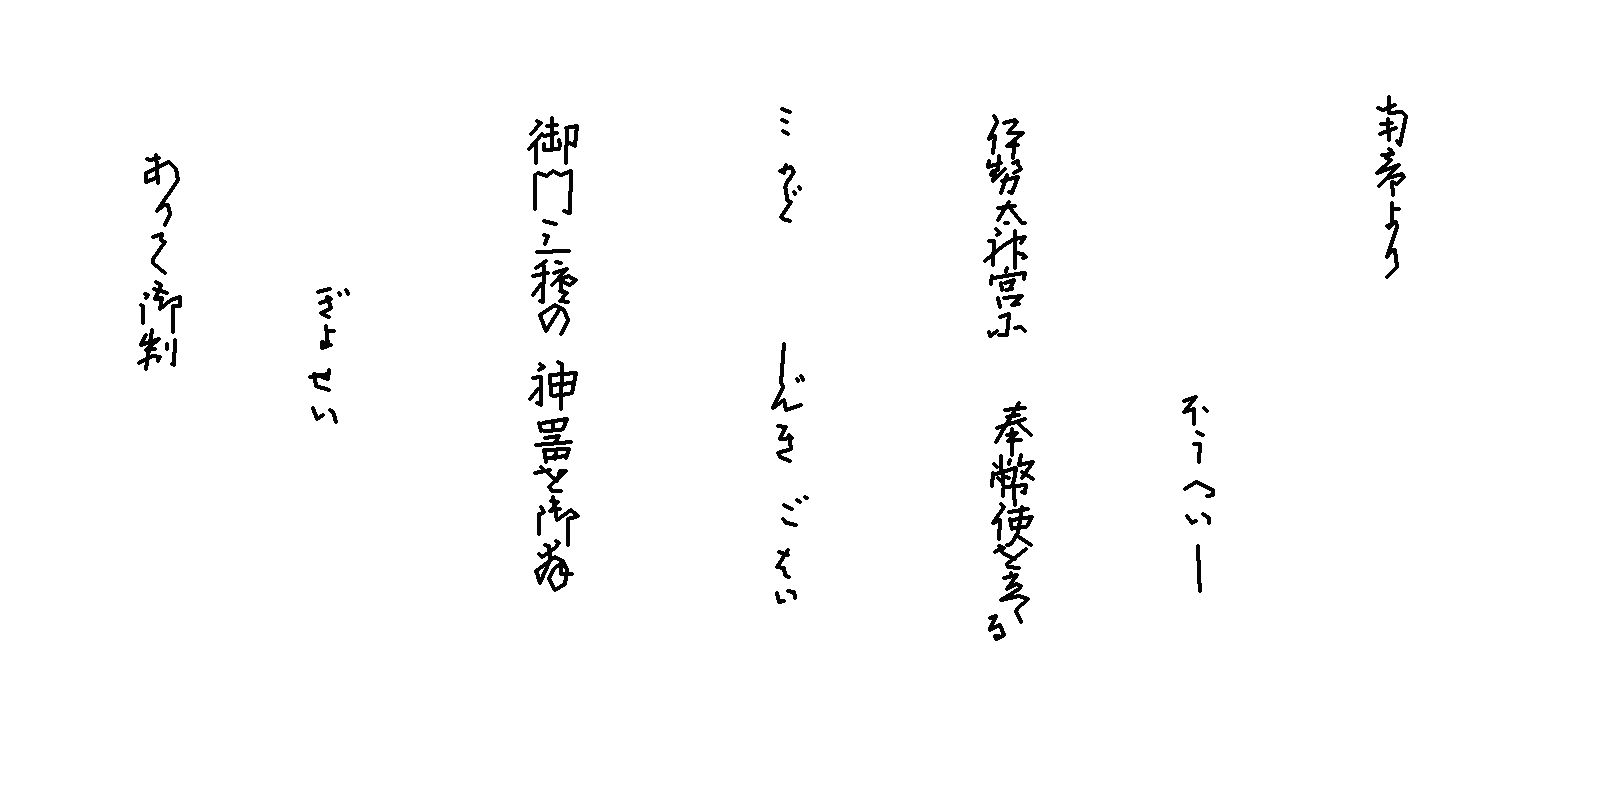 南帝より
ほうへいし
伊勢太神宮に 奉幣使を立てる
みかど じんき ごはい
御門三種の 神器を御拝
ぎよせい
ありて御制